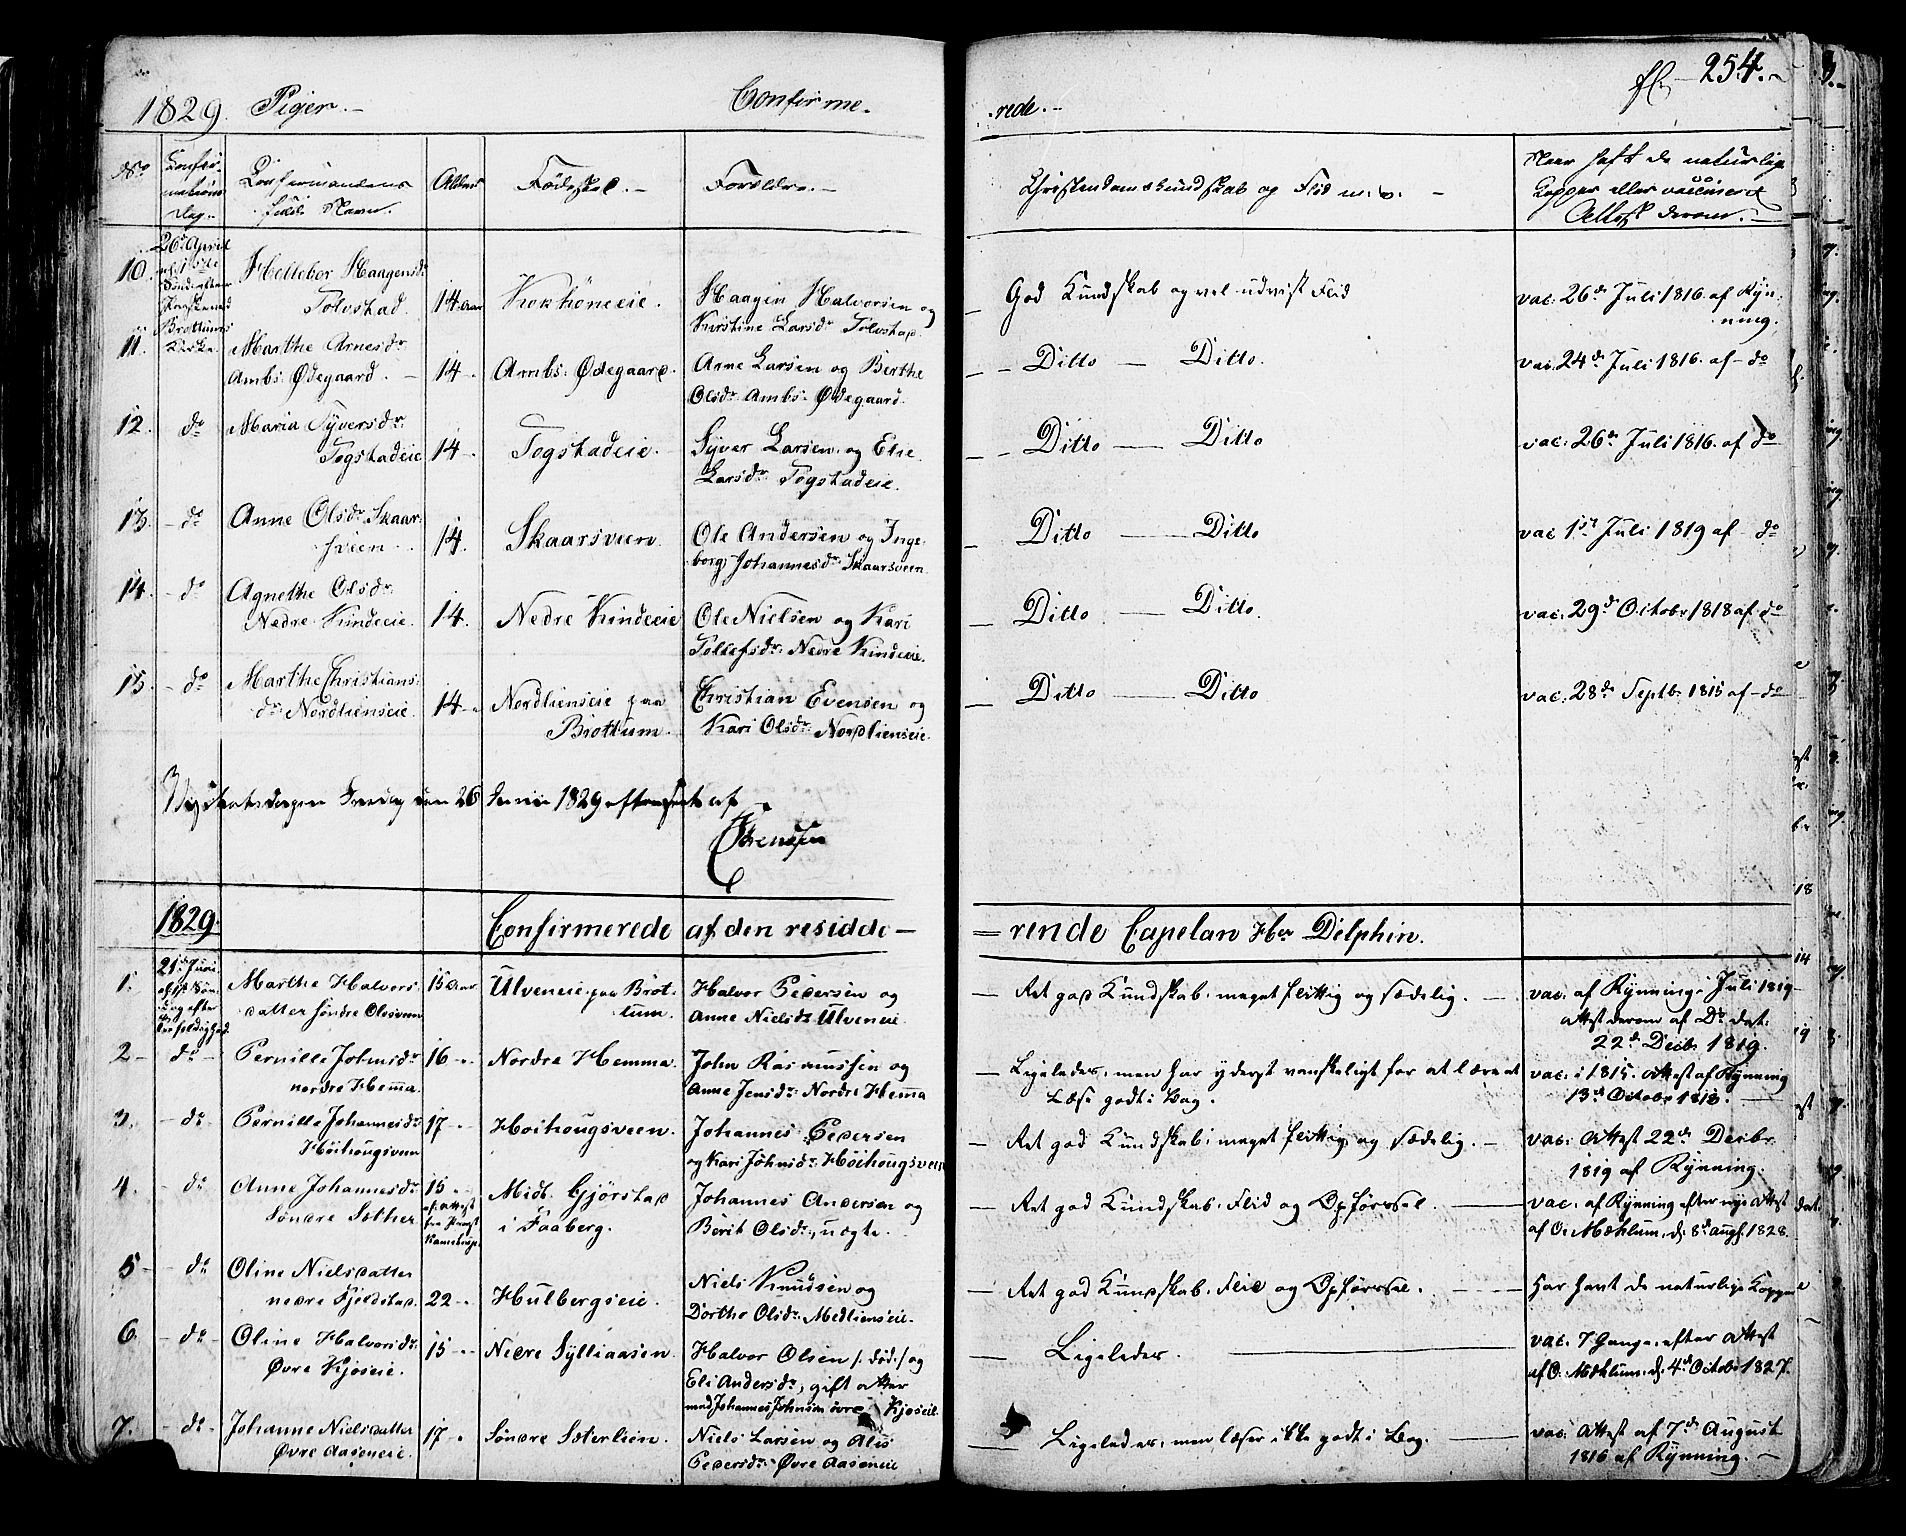 1829. Piger.— Confirme-
-rede.— fl. 254.
No Confir-mations Dag. Confirmandens fulde Navn. Alder Fødested.— Forældre.— Christendomskundskab og Flid m. v. — Naar haft de naturlige Kopper eller vaccineret Attest derom.—
10. 26de April Hellebor Haagensdr Tolvstad. 14 Aar Kokhöneeie. Haagen Halvorsen og Kirstine Larsdr Tolvstad. God Kundskab og vel udvist Flid vac. 26de Juli 1816. af Rynning.
Brøttums Kirke.
11. Marthe Arnesdr Ambs: Ødegaard. 14 Ambs: Ødegaard. Arne Larsen og Berthe Olsdr Ambs: Ødegaard. Ditto — Ditto. vac. 24de Juli 1816. af do
12. do Maria Syversdr Togstadeie 14 Togstadeie. Syver Larsen og Elie Larsdr Togstadeie. Ditto — Ditto vac. 26de Juli 1816. af do
13. do Anne Olsdr Skaarsveen 14. Skaarsveen. Ole Andersen og Ingeborg Johannesdr Skaarsveen Ditto — Ditto vac 1ste Juli 1819 af do
14. do Agnethe Olsdr Nedre Kindeeie. 14. Nedre Kindeeie Ole Nielsen og Kari Tollefsdr Nedre Kindeeie. Ditto — Ditto. vac. 29de Octobr 1818 af do
15. do Marthe Christiansdr Nordlienseie. 14 Nordlienseie paa Brøttum. Christian Evensen og Kari Olsdr Nordlienseie. Ditto — Ditto vac. 28de Septbr 1815 af do
26 Junii 1829 af
1829. Confirmerede af den residde-
=rende Capelan Hr Delphin.
1. 21de Juni Marthe Halvorsdatter søndre Olsveen 15 Aar Ulveneie paa Brøttum. Halvor Pedersen og Anne Nielsdr Ulveneie. Ret god Kundskab, meget flittig og sædelig. vac. af Rynning i Juli 1819 Attest derom af Do dat: 22de Decbr 1819.
2 do Pernille Johnsdr nordre Hemma. 16 Nordre Hemma. John Rasmussen og Anne Jensdr Nordre Hemma Ligeledes, men har yderst vanskeligt for at lære at Læse godt i Bog. vac. i 1815. Attest af Rynning 13de Octobr 1818.
3. do Pernille Johannesdr Höihougsveen 17 Höihougsveen. Johannes Pedersen og Kari Johnsdr Höihougsveen Ret god Kundskab, meget flittig og sædelig. vac. Attest 22de Decbr 1819 af Rynning.
4. do Anne Johannesdr Søndre Sæther. 15 Midt. Gjørstad i Faaberg. Johannes Andersen og Berit Olsdr, uægte. Ret god Kundskab, Flid og Opførsel. vac. af Rynning efter nye Attest af O. Mæhlum, d. 8de Augs. 1828.
5 do Oline Nielsdatter nedre Fjeldstad. 22 Hulbergseie. Niels Knudsen og Dorthe Olsdr Medlienseie. Ret god Kundskab, Flid og Opførsel. har havt de naturlige Kopper
6. do Oline Halvorsdr Øvre Kjøseie. 15 Nedre Sylliaasen. Halvor Olsen /: død :/ og Eli Andersdr, gift atter med Johannes Johnsen øvre Kjøseie. Ligeledes. vac. 7 Gange, efter Attest af O. Mæhlum, d. 4de Octobr 1827.
7. do Johanne Nielsdatter Øvre Aaseneie. 17 Søndre Sæterlien. Niels Larsen og Alis Pedersdr Øvre Aaseneie Ligeledes, men læser ikke godt i Bog. vac. Attest af 7de August 1816 af Rynning.